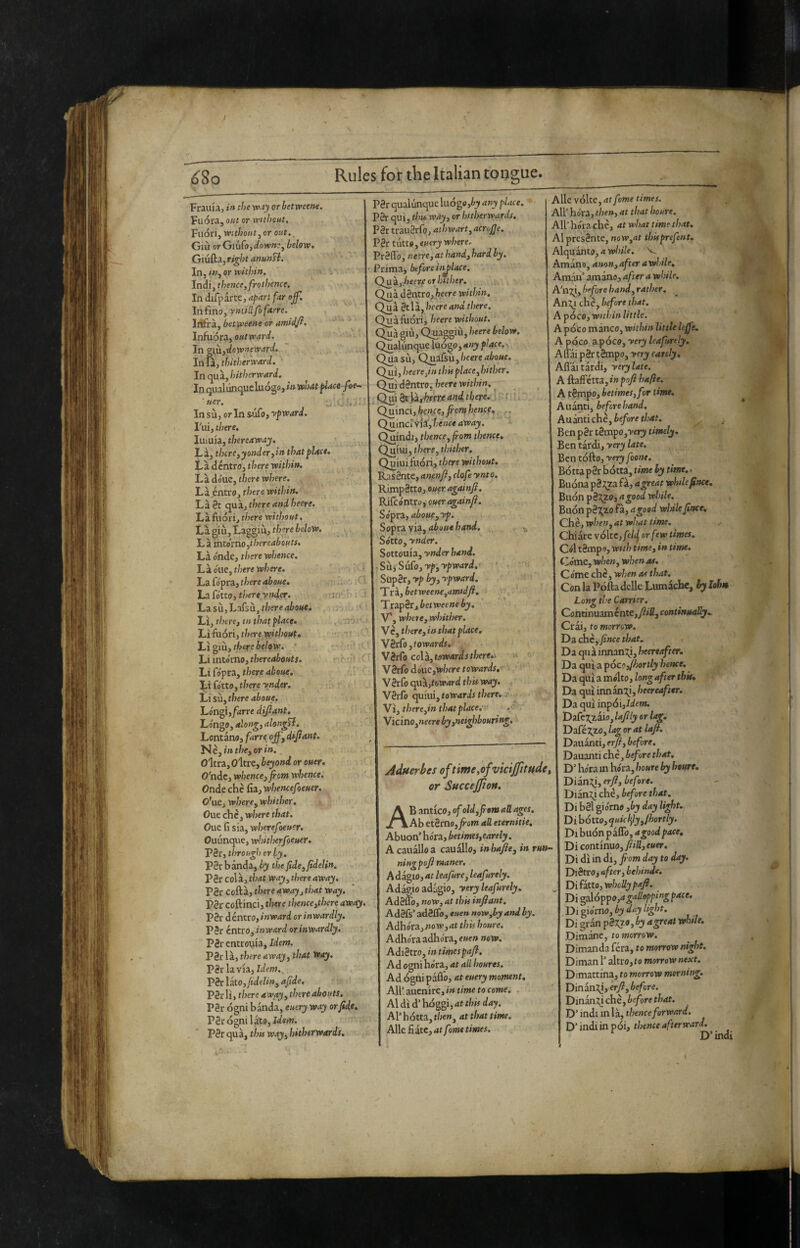 680 Rules for the Italian tongue.
Frauía, in the way or betweene.
Fuóra, out or without.
Fuóri, without, or out.
Giù or Giúſo, downe, below.
Giuſta, right anunſt.
In, in, or within.
Indi, thence, frothence.
In diſpárte, apart far off.
In fino, vntill ſo farre.
Infrà, betweene or amidſt.
Infuóra, outward.
In giù, downeward.
In là, thitherward.
In quà, hitherward.
In qualúnque luógo, in what place-ſoe-
uer.
In sù, or In súſo, vpward.
I'ui, there.
Iuiuía, thereaway.
Là, there, yonder, in that place.
Là déntro, there within.
Là dóue, there where.
Là éntro, there within.
Là ۟t quà, there and heere.
Là fuóri, there without.
Là giù, Laggiù, there below.
Là intórno, thereabouts.
Là ónde, there whence.
Là óue, there where.
La ſópra, there aboue.
La ſótto, there vnder.
La sù, Laſsù, there aboue.
Lì, there, in that place.
Li fuóri, there without.
Li giù, there below.
Li intórno, thereabouts.
Li ſópra, there aboue.
Li ſótto, there vnder.
Li sù, there aboue.
Lóngi, farre diſtant.
Lóngo, along, alongſt.
Lontáno, farre off, diſtant.
Nè, in the, or in.
O'ltra, O'ltre, beyond or ouer.
O'nde, whence, from whence.
Onde chè ſia, whenceſoeuer.
O'ue, where, whither.
Oue chè, where that.
Oue ſi sia, whereſoeuer.
Ouúnque, whitherſoeuer.
Pĕr, through or by.
Pĕr bánda, by the ſide, ſidelin.
Pĕr colà, that way, there away.
Pĕr coſtà, there away, that way.
Pĕr coſtinci, there thence, there away.
Pĕr déntro, inward or inwardly.
Pĕr éntro, inward or inwardly.
Pĕr entrouía, Idem.
Pĕr là, there away, that way.
Pĕr la vía, Idem.
Pĕr láto, ſidelin, aſide.
Pĕr lì, there away, there abouts.
Pĕr ógni bánda, euery way or ſide.
Pĕr ógni láto, Idem.
Pĕr quà, this way, hitherwards.
Pĕr qualúnque luógo, by any place.
Pĕr quì, this way, or hitherwards.
Pĕr trauĕrſo, athwart, acroſſe.
Pĕr tútto, euery where.
Prĕſſo, neere, at hand, hard by.
Príma, before in place.
Quà, heere or hither.
Quà dĕntro, heere within.
Quà ĕt là, heere and there.
Quà fuóri, heere without.
Quà giù, Quaggiù, heere below.
Qualúnque luógo, any place.
Qua sù, Quaſsù, heere aboue.
Quì, heere, in this place, hither.
Qui dĕntro, heere within.
Qui ĕt là, heere and there.
Quinci, hence, from hence.
Quinci vía, hence away.
Quindi, thence, from thence.
Quíui, there, thither.
Quíui fuóri, there without.
Rasĕnte, anenſt, cloſe vnto.
Rimpĕtto, ouer againſt.
Riſcóntro, ouer againſt.
Sópra, aboue, vp.
Sopra vía, aboue hand.
Sótto, vnder.
Sottouía, vnder hand.
Sù, Súſo, vp, vpward.
Supĕr, vp by, vpward.
Trà, betweene, amidſt.
Trapĕr, betweene by.
V', where, whither.
Vè, there, in that place.
Vĕrſo, towards.
Vĕrſo colà, towards there.
Vĕrſo dóue, where towards.
Vĕrſo quà, toward this way.
Vĕrſo quíui, towards there.
Vi, there, in that place.
Vicíno, neere by, neighbouring.
Aduerbes of time, of viciſſitude,
or Succeſſion.
AB antíco, of old, from all ages.
Ab etĕrno, from all eternitie.
Abuon' hóra, betimes, earely.
A cauállo a cauállo, in haſte, in run-
ning poſt maner.
Adágio, at leaſure, leaſurely.
Adágio adágio, very leaſurely.
Adĕſſo, now, at this inſtant.
Adĕſs' adĕſſo, euen now, by and by.
Adhóra, now, at this houre.
Adhóra adhóra, euen now.
Adiĕtro, in times paſt.
Ad ogni hóra, at all houres.
Ad ógni páſſo, at euery moment.
All' auenire, in time to come.
Al dì d' hóggi, at this day.
Al' hótta, then, at that time.
Alle fiáte, at ſome times.
Alle vólte, at ſome times.
All' hóra, then, at that houre.
All' hóra chè, at what time that.
Al preſĕnte, now, at this preſent.
Alquánto, a while.
Amáno, anon, after a while.
Amán' amáno, after a while.
A'nzi, before hand, rather.
Anzi chè, before that.
A póco, within little.
A póco manco, within little leſſe.
A póco a póco, very leaſurely.
Aſſái pĕr tĕmpo, very earely.
Aſſái tárdi, very late.
A ſtafſétta, in poſt haſte.
A tĕmpo, betimes, for time.
Auánti, before hand.
Auánti chè, before that.
Ben pĕr tĕmpo, very timely.
Ben tárdi, very late.
Ben tóſto, very ſoone.
Bótta pĕr bótta, time by time.
Buóna pĕzza fà, a great while ſince.
Buón pĕzzo, a good while.
Buón pĕzzo fà, a good while ſince.
Chè, when, at what time.
Chiáte vólte, ſeld or few times.
Cól tĕmpo, with time, in time.
Cóme, when, when as.
Cóme chè, when as that.
Con la Póſta delle Lumáche, by Iohn
Long the Carrier.
Continuaménte, ſtill, continually.
Crái, to morrow.
Da chè, ſince that.
Da quì innanzi, heereafter.
Da quì a póco, ſhortly hence.
Da quì a mólto, long after this.
Da quì innánzi, heereafter.
Da quì inpói, Idem.
Daſezzáio, laſtly or lag.
Daſézzo, lag or at laſt.
Dauánti, erſt, before.
Dauanti chè, before that.
D' hóra in hóra, houre by houre.
Diánzi, erſt, before.
Diánzi chè, before that.
Di bĕl giórno, by day light.
Di bótto, quickly, ſhortly.
Di buón páſſo, a good pace.
Di contínuo, ſtill, euer.
Di dì in dì, from day to day.
Diĕtro, after, behinde.
Di fátto, wholly paſt.
Di galóppo, a gallopping pace.
Di giórno, by day light.
Di grán pĕzzo, a great while.
Dimáne, to morrow.
Dimanda ſéra, to morrow night.
Diman l' altro, to morrow next.
Dimattína, to morrow morning.
Dinánzi, erſt, before.
Dinánzi chè, before that.
D' indi in là, thence forward.
D' indi in pói, thence afterward.
D' indi